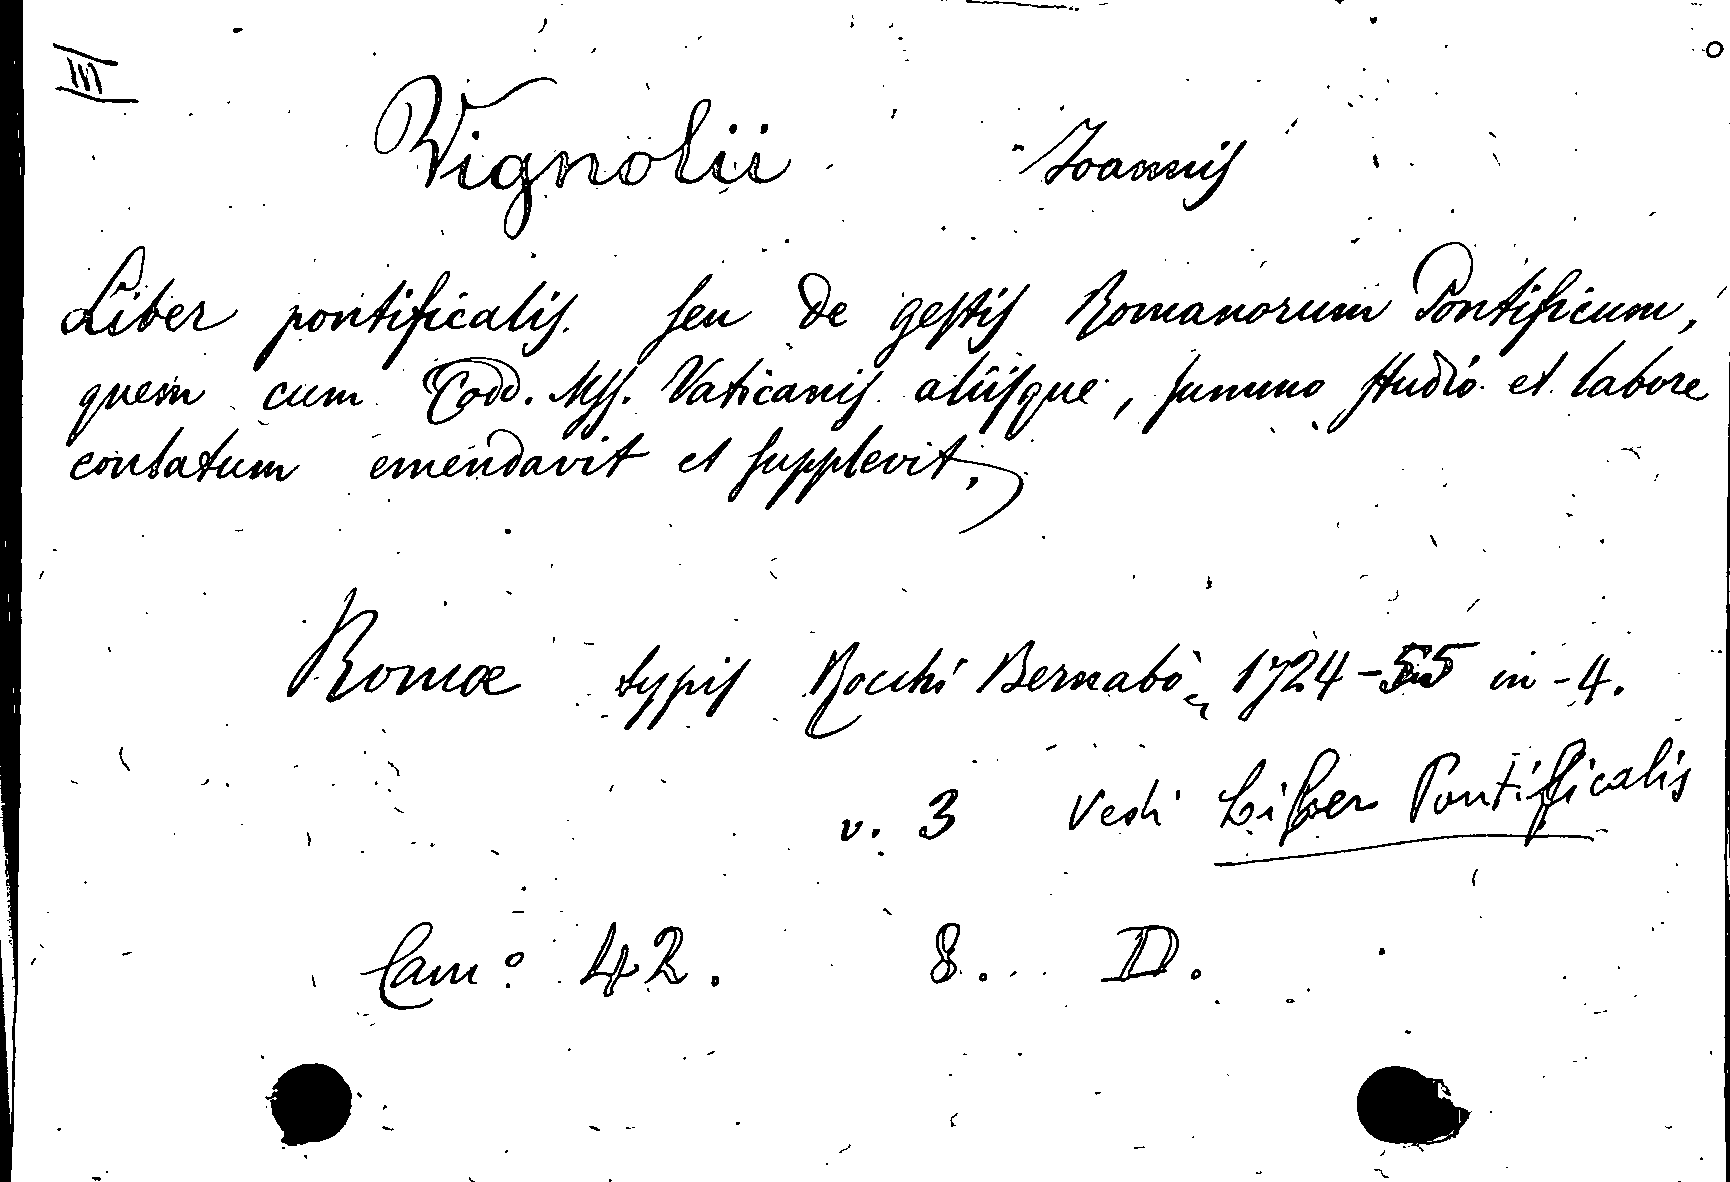 III
Vignolii Joannis
Liber pontificalis seu de gestis Romanorum Pontificum,
quem cum Codd. Mss. Vaticanis aliisque, summo studio et labore
conlatum emendavit et supplevit.
Romæ typis Rocchi Bernabò, 1724-55 in-4.
v. 3 Vedi Liber Pontificalis
Camº 42. 8. D.